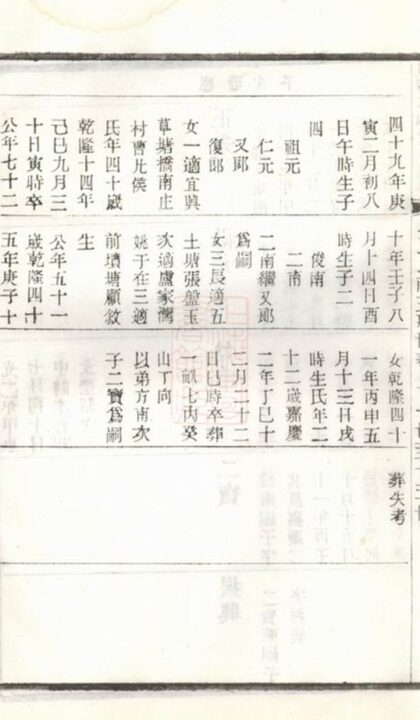 四十九年庚
寅二月初八
日午時生子
四
祖元
仁元
又郎
復郎
女一適宜興
草塘橋南庄
村曹侯
氏年四十歲
乾隆十四年
己巳九月三
十日寅時卒
公年七十二
十年壬子八
月十四日酉
時生子二
俊南
二南
二南繼又郎
爲嗣
女三長適五
土塘張盤玉
次適盧家灣
姚于在三適
前墳塘顧敘
生
公年五十一
歲乾隆四十
五年庚子十
女乾隆四十
一年丙申五
月十三日戌
時生氏年二
十二歲嘉慶
二年丁巳十
二月二十二
日巳時卒葬
一畝七丙癸
山丁向
以弟方南次
子二寶爲嗣
葬失考